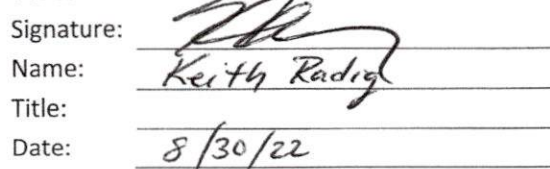 Signature:
Name: Keith Radig
Title:
Date: 8/30/22